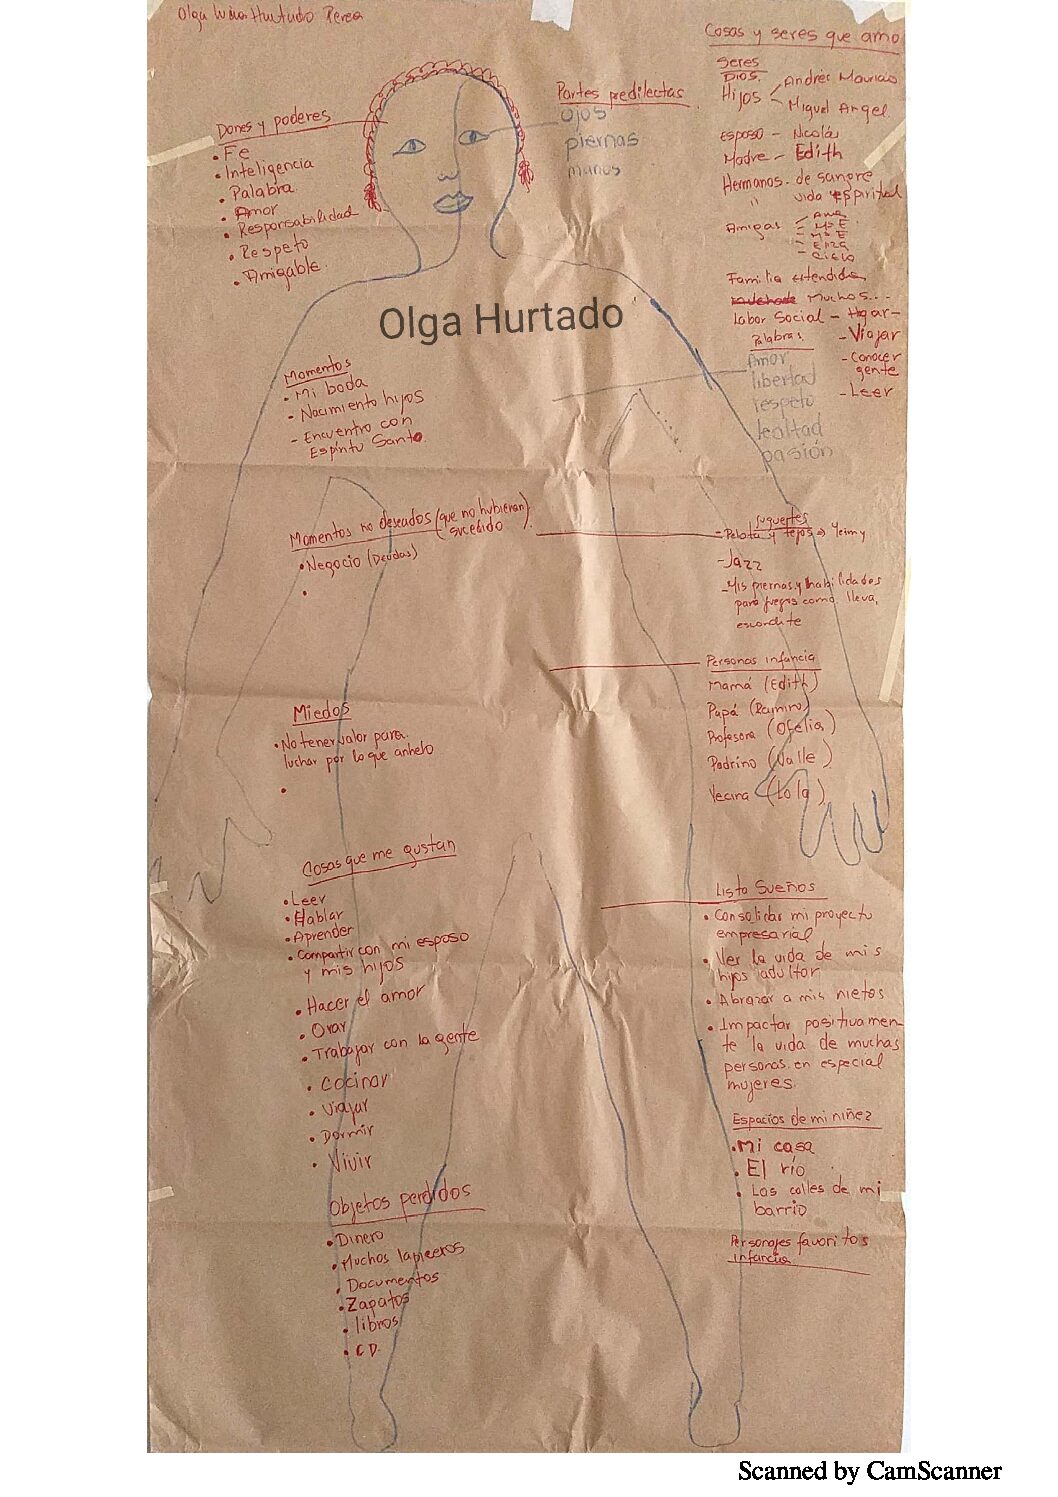 Olga Hurtado Perea
Dones y poderes
• Fe
• Inteligencia
• Palabra
• Amor
• Responsabilidad
• Respeto
• Amigable
Partes predilectas
ojos
piernas
manos
Cosas y seres que amo
Seres
Dios
Hijos
Andrés Mauricio
Miguel Angel
Esposo - Nicolás
Madre - Edith
Hermanos de sangre
" vida espiritual
Amigas
- Ana
- Mª E
- Mª E
Familia extendida
Muchos...
Labor Social - Hogar -
- Viajar
- Conocer
gente
- Leer
Palabras
Amor
libertad
respeto
lealtad
pasión
Olga Hurtado
Momentos
• Mi boda
• Nacimiento hijos
- Encuentro con
Espíritu Santo
Momentos no deseados (que no hubieran
sucedido
• Negocio (Deudas)
•
Juguetes
- Pelota y tejos → Yeimy
- Jazz
- Mis piernas y habilidades
para juegos como lleva,
escondite
Personas infancia
Mamá (Edith)
Papá (Ramiro)
Profesora (Ofelia)
Padrino (Valle)
Vecina (Lola)
Miedos
• No tener valor para
luchar por lo que anhelo
•
Cosas que me gustan
• Leer
• Hablar
• Aprender
• Compartir con mi esposo
y mis hijos
• Hacer el amor
• Orar
• Trabajar con la gente
• Cocinar
• Viajar
• Dormir
• Vivir
Objetos perdidos
• Dinero
• Muchos lapiceros
• Documentos
• Zapatos
• libros
• CD.
Lista Sueños
• Consolidar mi proyecto
empresarial
• Ver la vida de mis
hijos adultos
• Abrazar a mis nietos
• Impactar positivamen-
te la vida de muchas
personas en especial
mujeres
Espacios de mi niñez
• Mi casa
• El río
• Las calles de mi
barrio
Personajes favoritos
infancia
Scanned by CamScanner